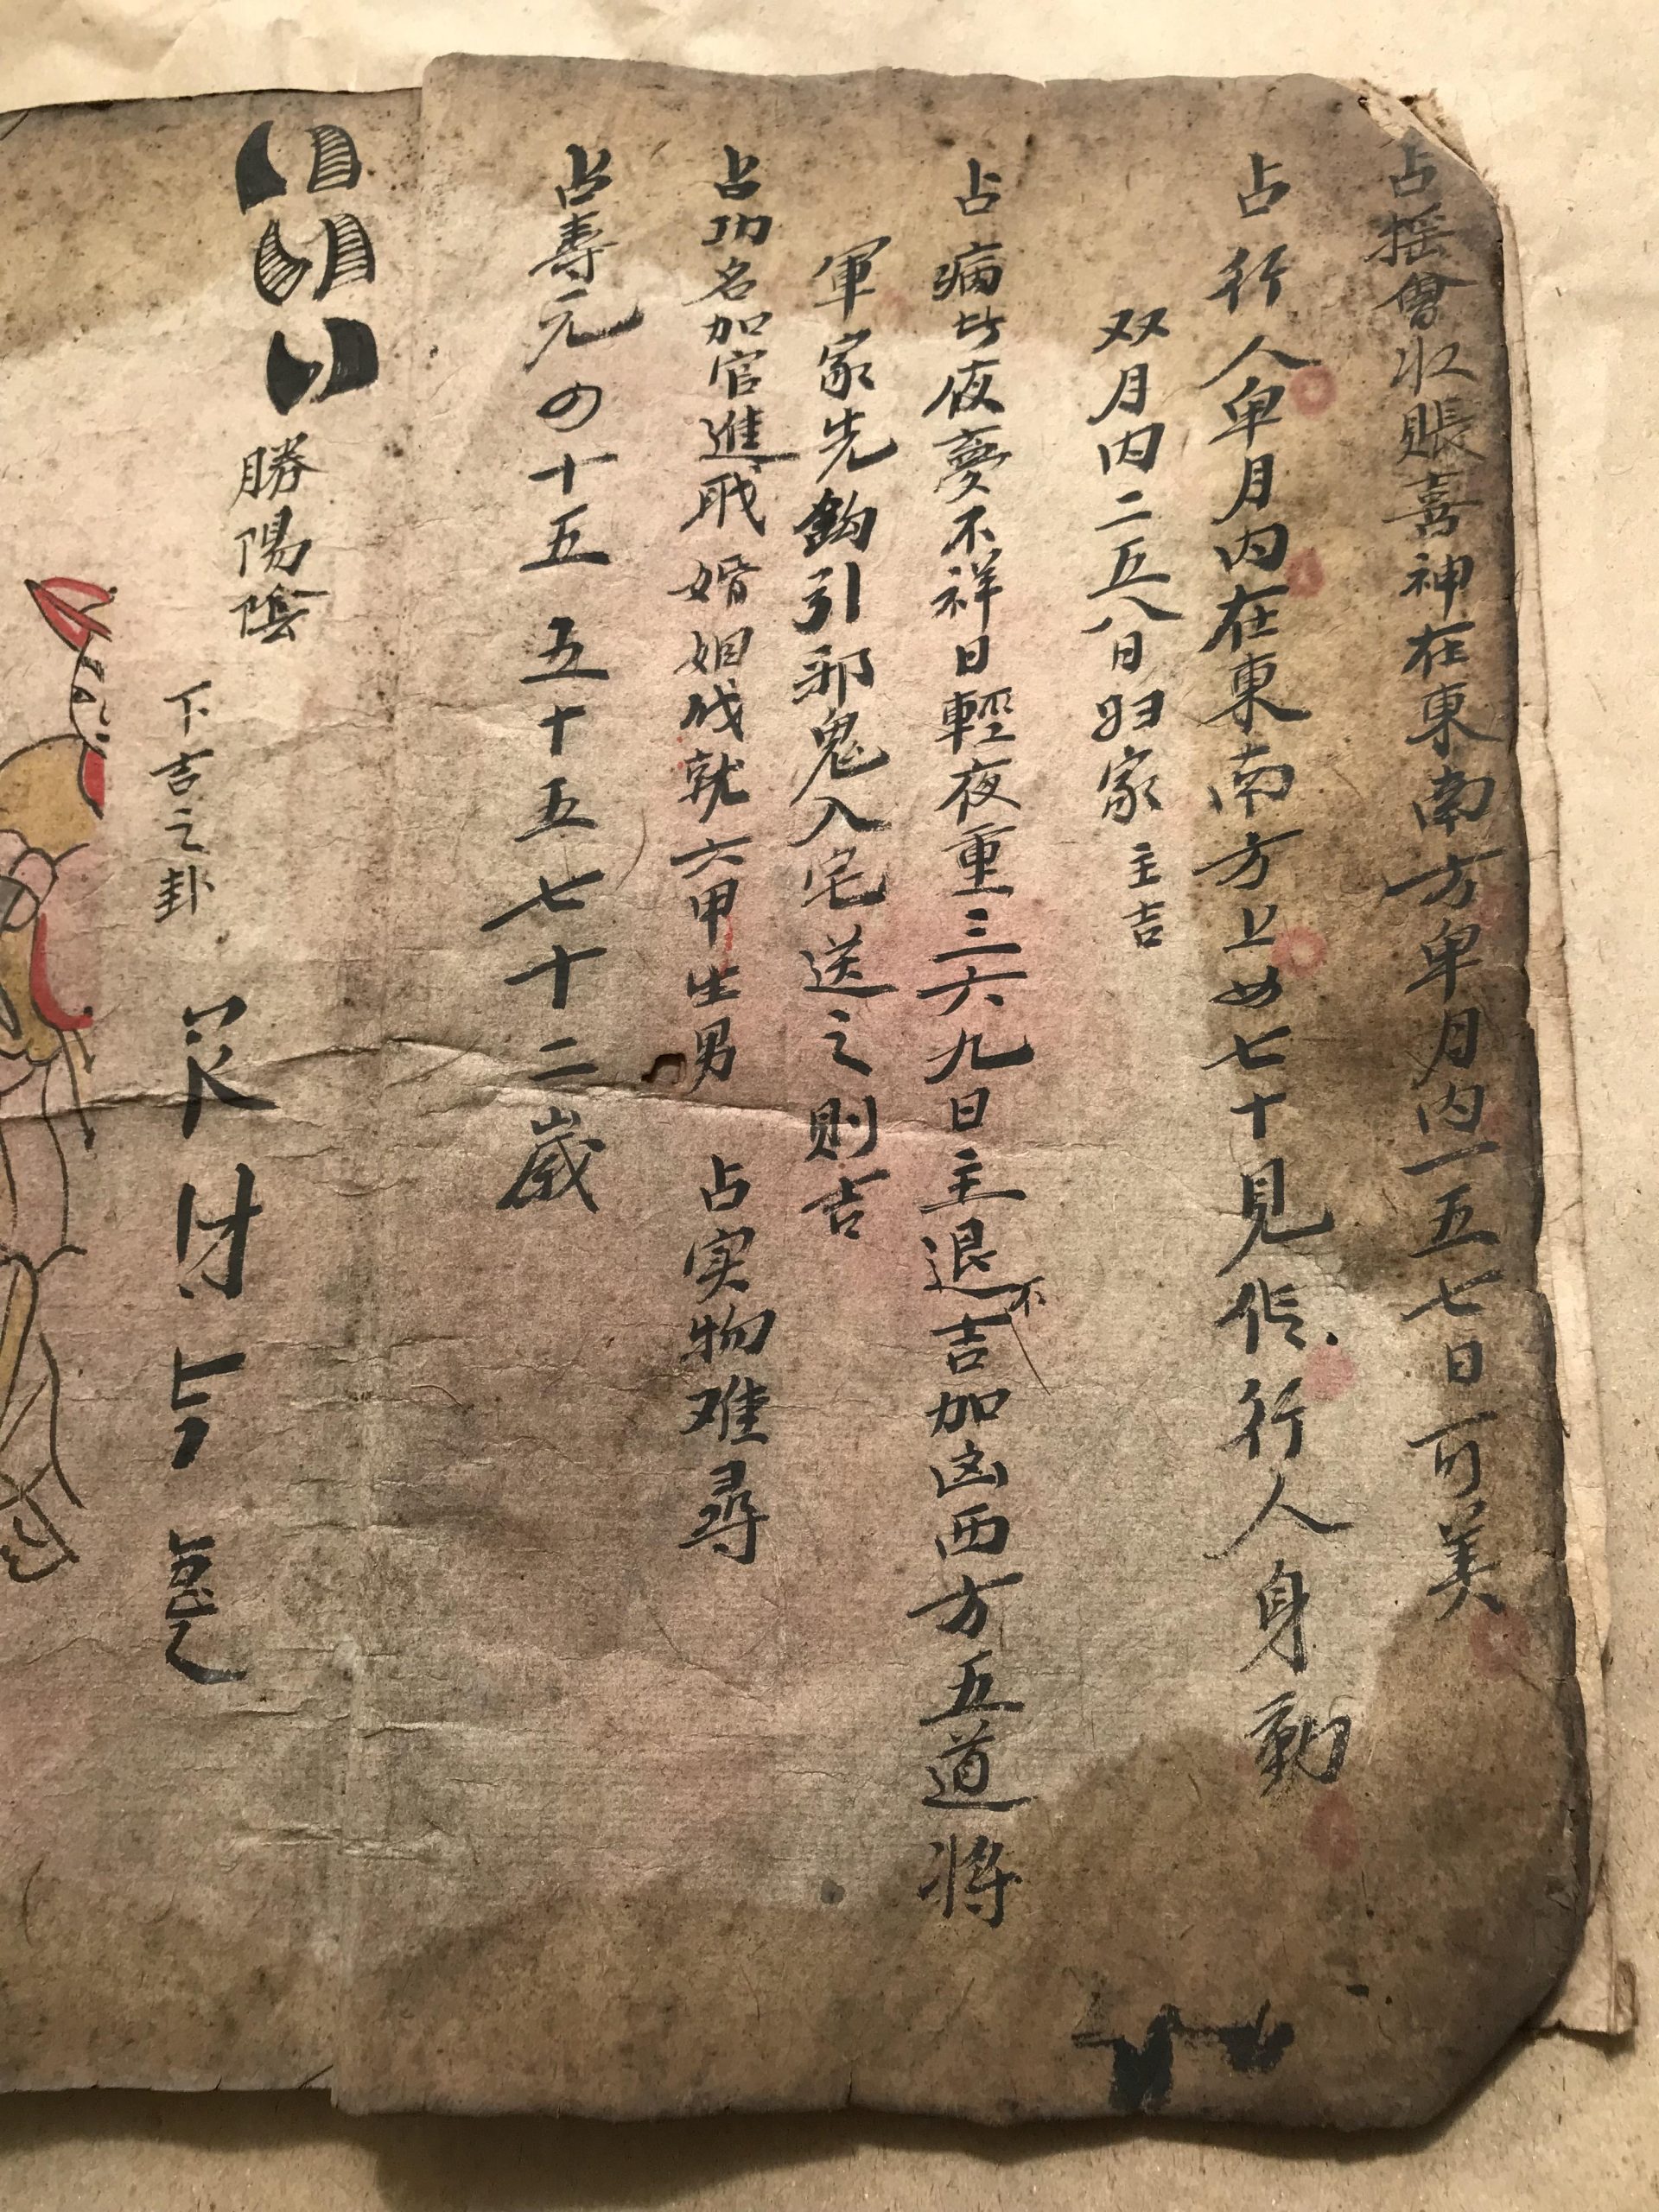 占摇會收賬喜神在東南方单月内一五七日可美
占行人单月内在東南方上廿七十見信行人身動
双月内二五八日归家主吉
占病此夜夢不祥日輕夜重三六九日主退不吉加凶西方五道将
軍家先鈎引邪鬼入宅送之則吉
占功名加官進職婚姻成就六甲生男 占实物难尋
占壽元の十五 五十五 七十二歲
勝陽陰
下吉之卦